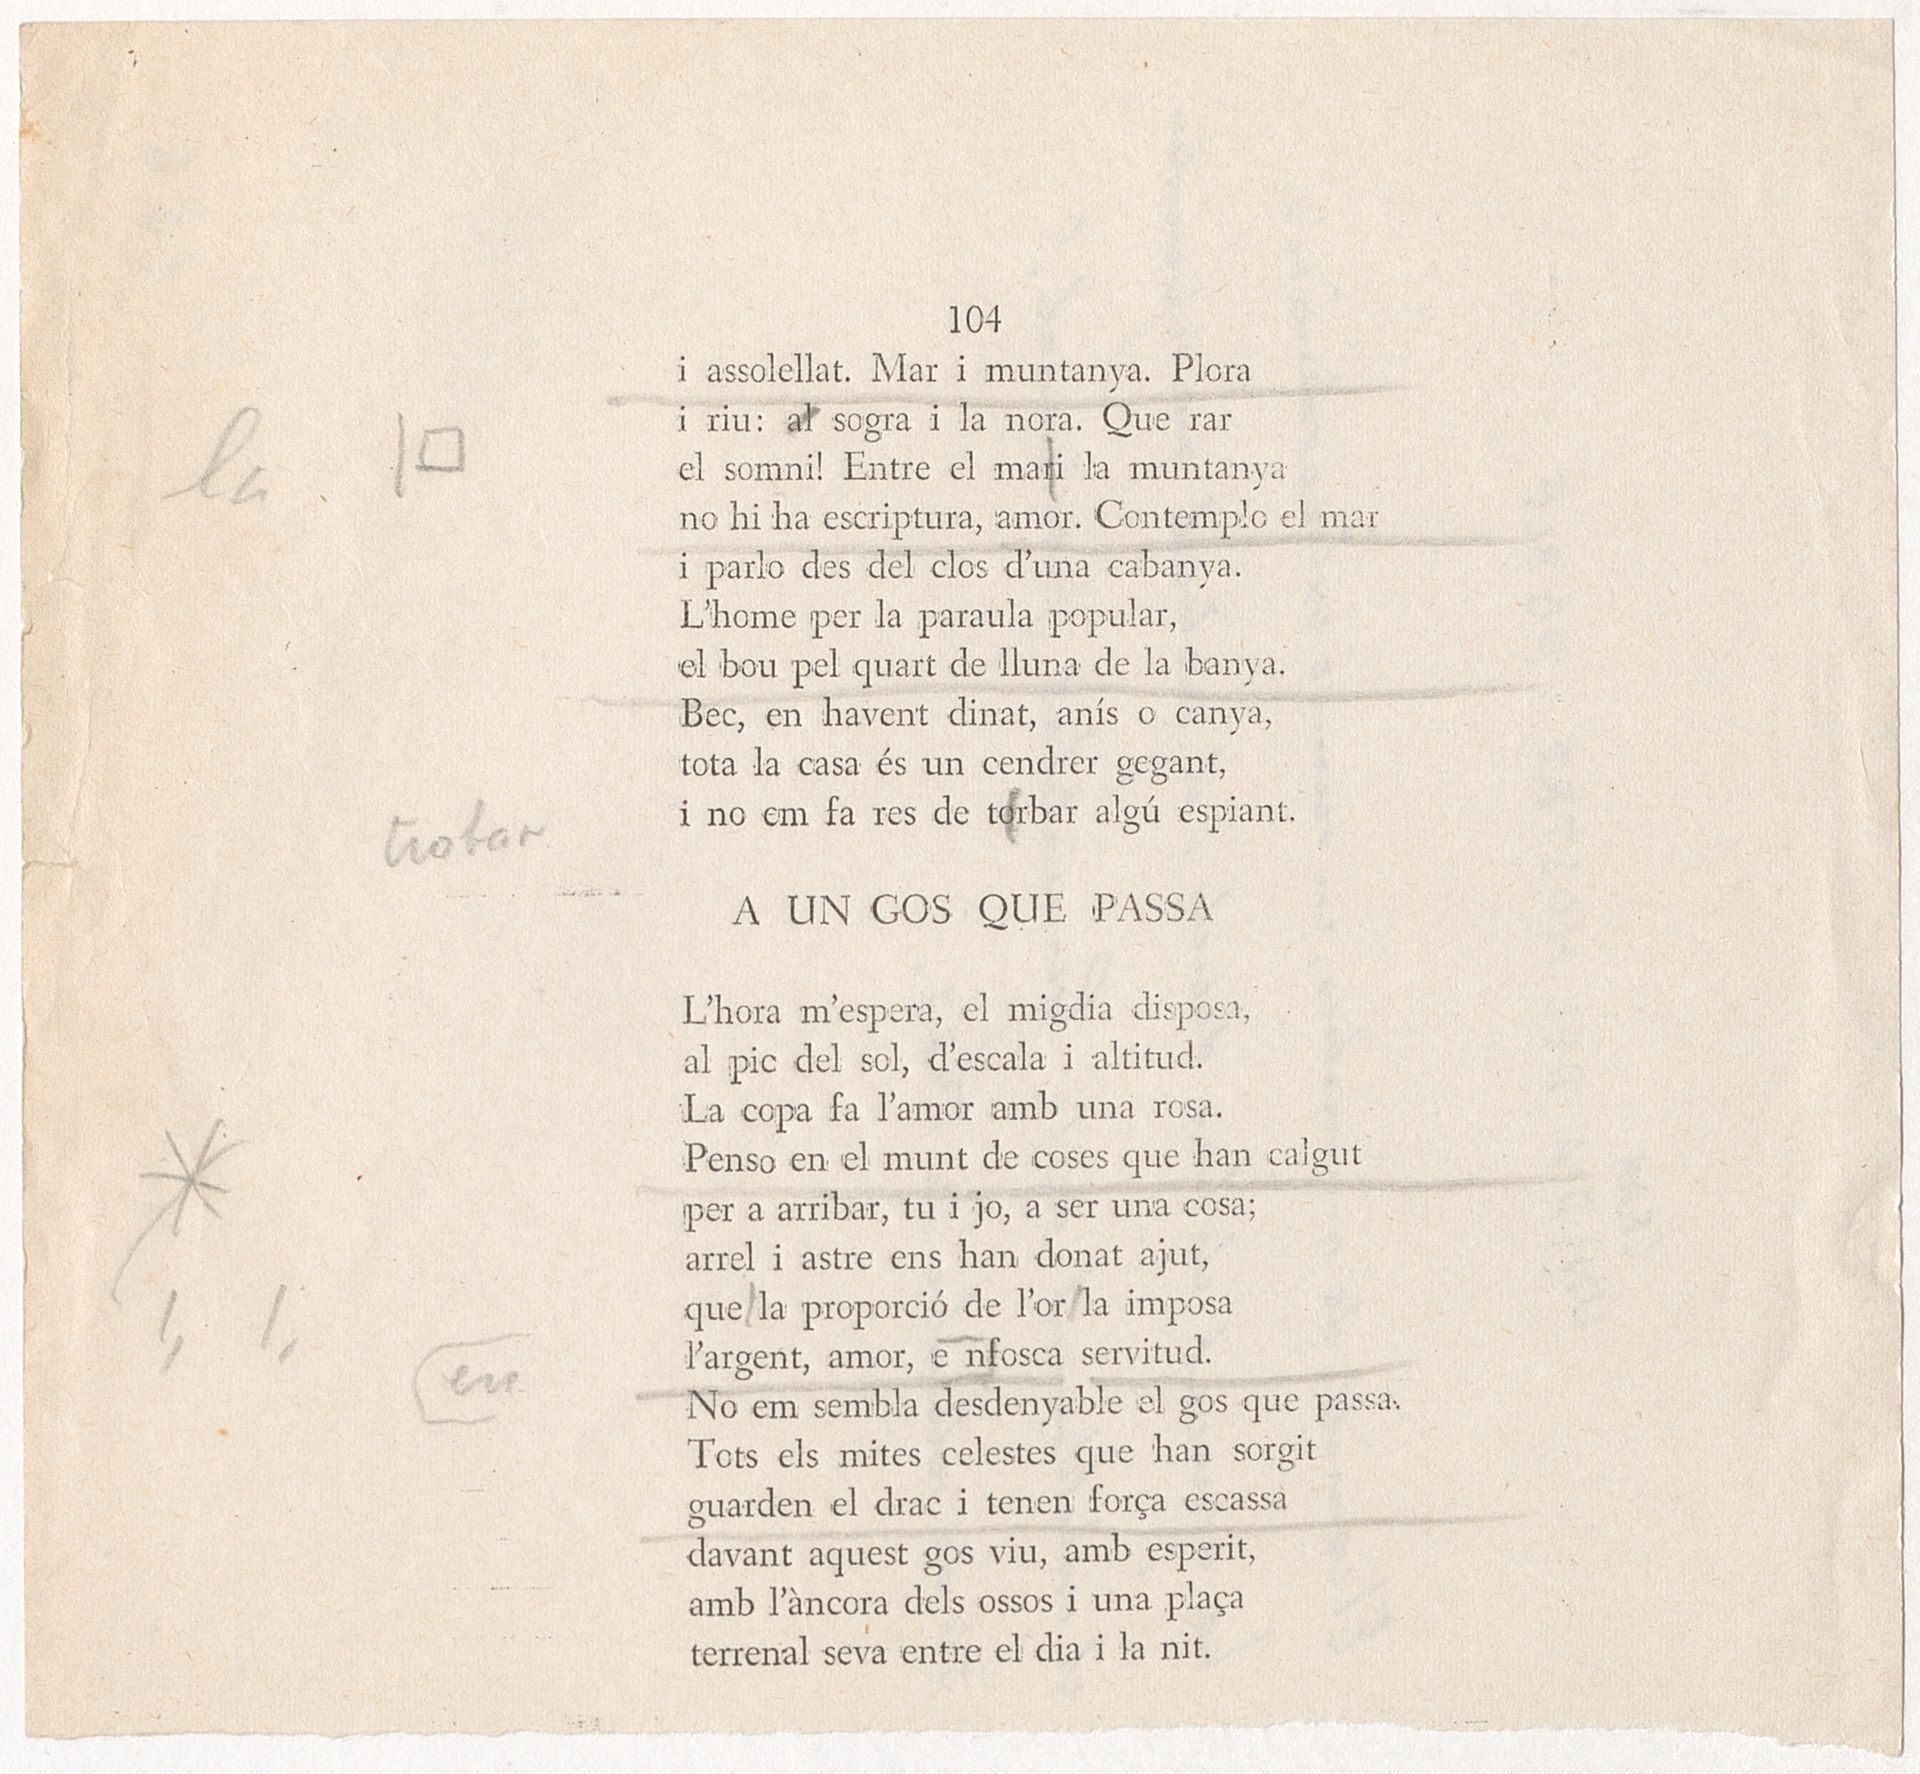 104
i assolellat. Mar i muntanya. Plora
i riu: al sogra i la nora. Que rar
la
el somni! Entre el mari la muntanya
no hi ha escriptura, amor. Contemplo el mar
i parlo des del clos d'una cabanya.
L'home per la paraula popular,
el bou pel quart de lluna de la banya.
Bec, en havent dinat, anís o canya,
tota la casa és un cendrer gegant,
i no em fa res de torbar algú espiant.
trobar
A UN GOS QUE PASSA
L'hora m'espera, el migdia disposa,
al pic del sol, d'escala i altitud.
La copa fa l'amor amb una rosa.
Penso en el munt de coses que han calgut
per a arribar, tu i jo, a ser una cosa;
arrel i astre ens han donat ajut,
que la proporció de l'or la imposa
l'argent, amor, e nfosca servitud.
en
No em sembla desdenyable el gos que passa.
Tots els mites celestes que han sorgit
guarden el drac i tenen força escassa
davant aquest gos viu, amb esperit,
amb l'àncora dels ossos i una plaça
terrenal seva entre el dia i la nit.